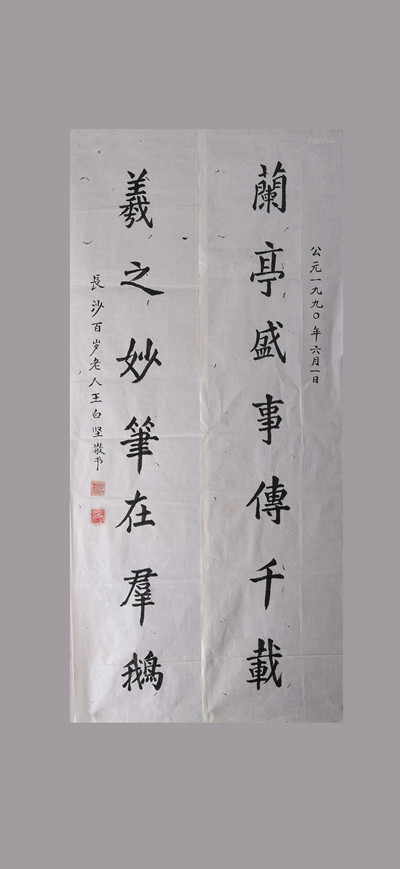 公元一九九〇年六月一日
蘭亭盛事傳千載
羲之妙筆在羣鵝
長沙百岁老人王白坚敬书